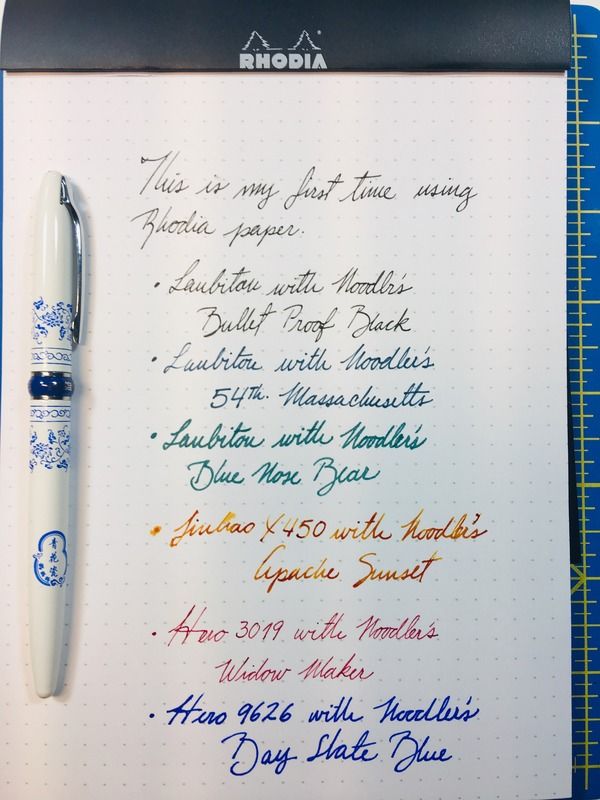 RHODIA
This is my first time using
Rhodia paper.
• Laubitou with Noodlr's
Bullet Proof Black
• Laubitou with Noodler's
54th Massachusetts
• Laubitou with Noodler's
Blue Nose Bear
• Jinhao X450 with Noodler's
Apache Sunset
• Hero 3019 with Noodler's
Widow Maker
• Hero 9626 with Noodler's
Bay State Blue
青花瓷